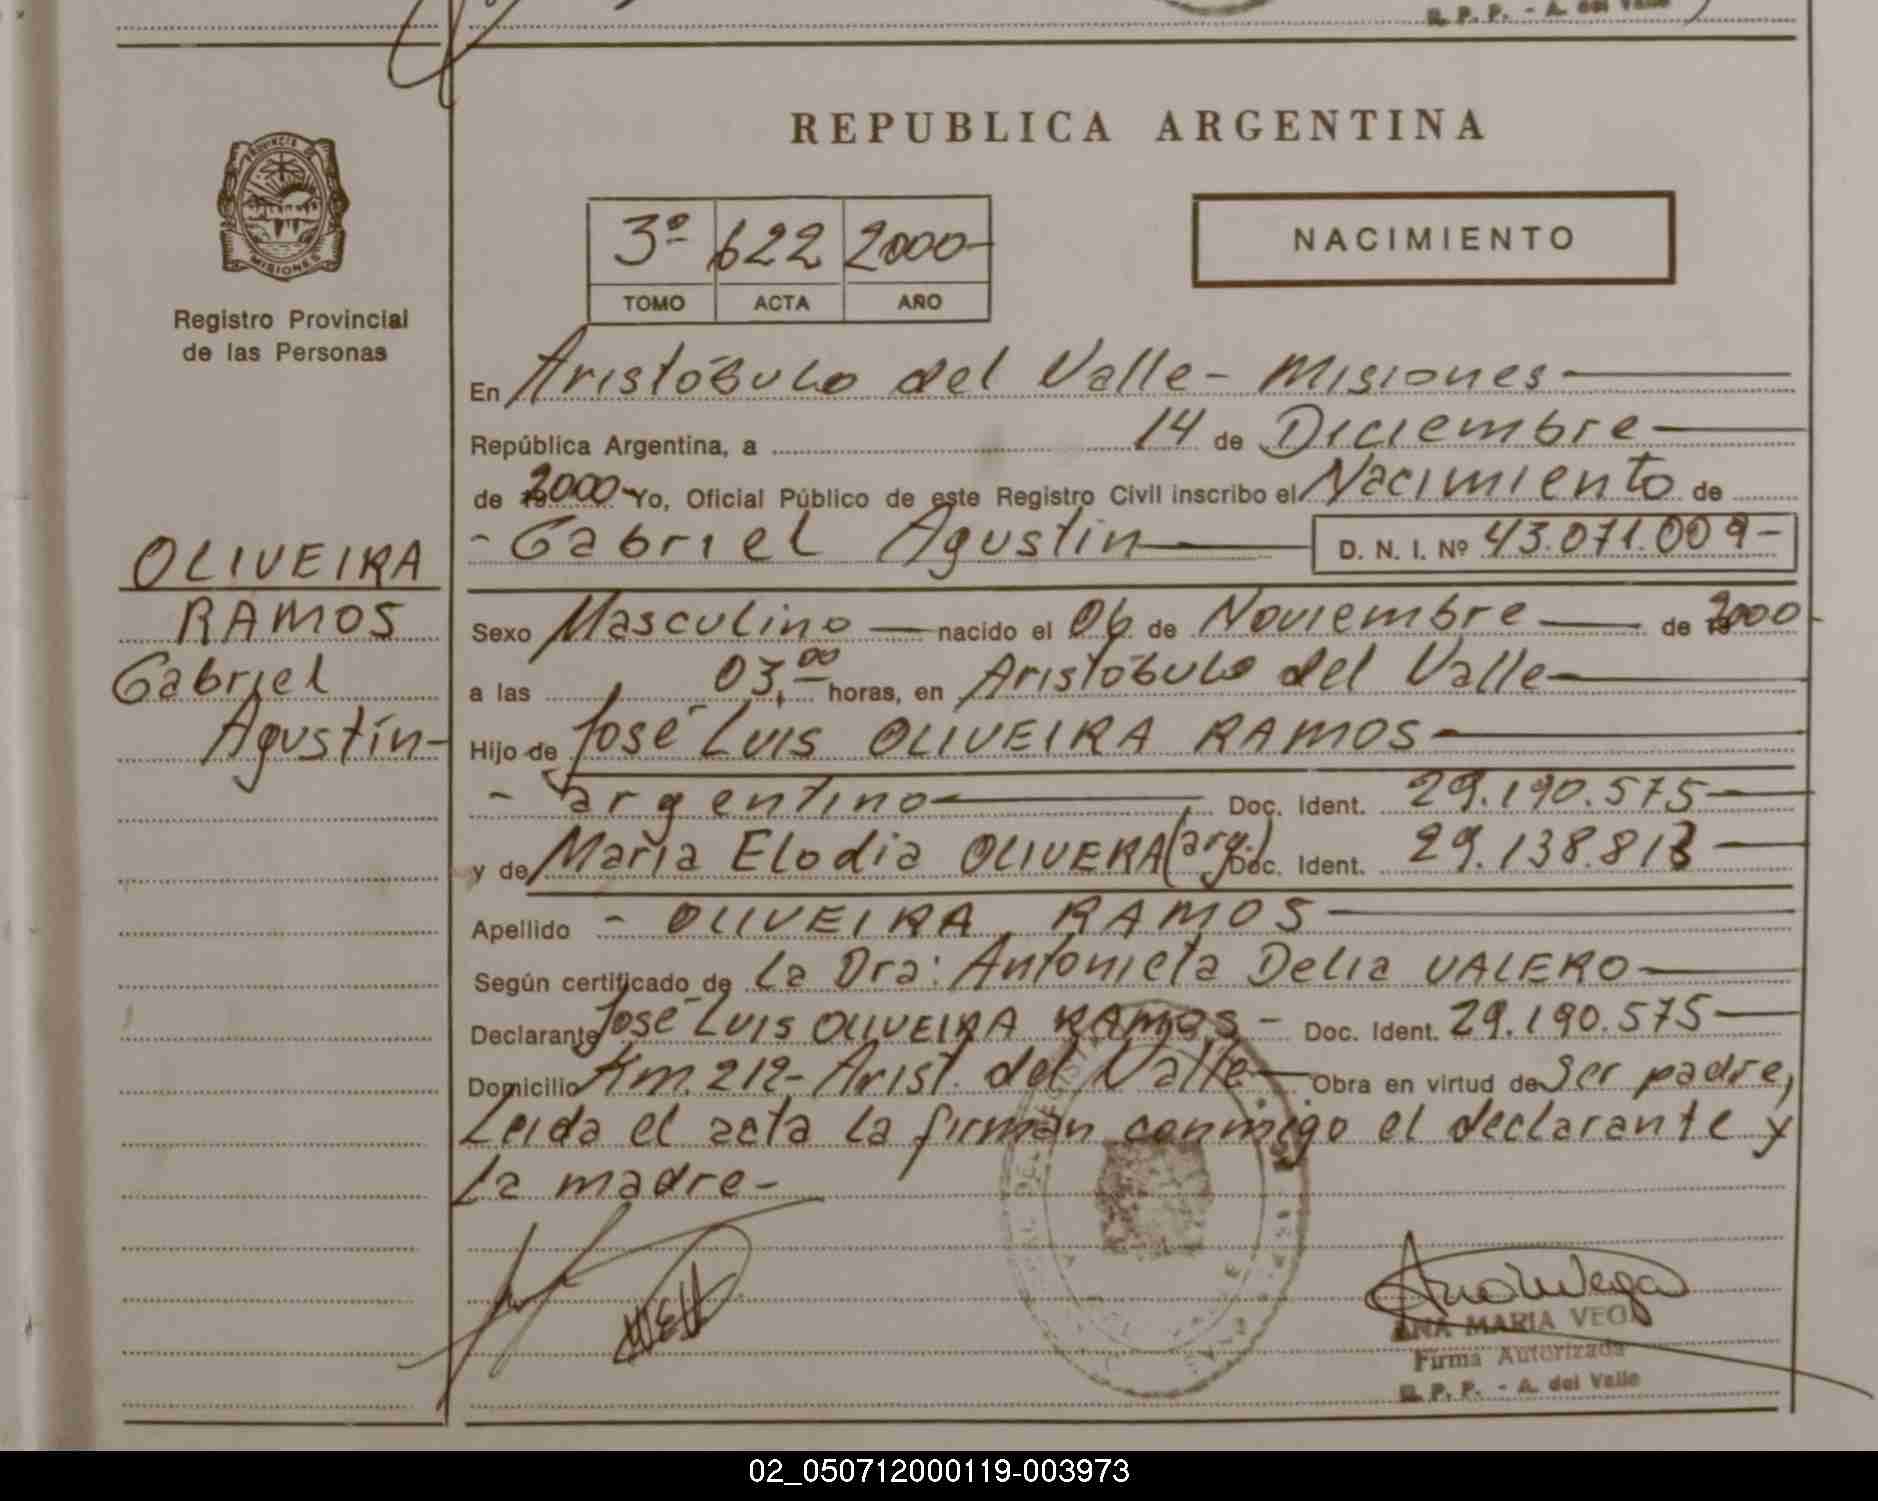 R. P. P. - A. del Valle
REPUBLICA ARGENTINA
PROVINCIA DE
MISIONES
Registro Provincial
de las Personas
3º 622 2000-
TOMO ACTA AÑO
NACIMIENTO
En Aristóbulo del Valle - Misiones
República Argentina, a 14 de Diciembre
de 2000 - Yo, Oficial Público de este Registro Civil inscribo el Nacimiento de
- Gabriel Agustín D. N. I. Nº 43.071.009-
OLIVEIRA
RAMOS
Gabriel
Agustín-
Sexo Masculino nacido el 06 de Noviembre de 2000
a las 03,00 horas, en Aristóbulo del Valle
Hijo de José Luis OLIVEIRA RAMOS
- argentino Doc. Ident. 29.190.575
y de María Elodia OLIVERA (arg.) Doc. Ident. 29.138.813
Apellido - OLIVEIRA RAMOS
Según certificado de La Dra: Antonieta Delia VALERO
Declarante José Luis OLIVEIRA RAMOS - Doc. Ident. 29.190.575
Domicilio Km. 212 - Arist. del Valle Obra en virtud de ser padre,
Leida el acta la firman conmigo el declarante y
la madre-
ANA MARIA VEGA
Firma Autorizada
R. P. P. - A. del Valle
02_050712000119-003973